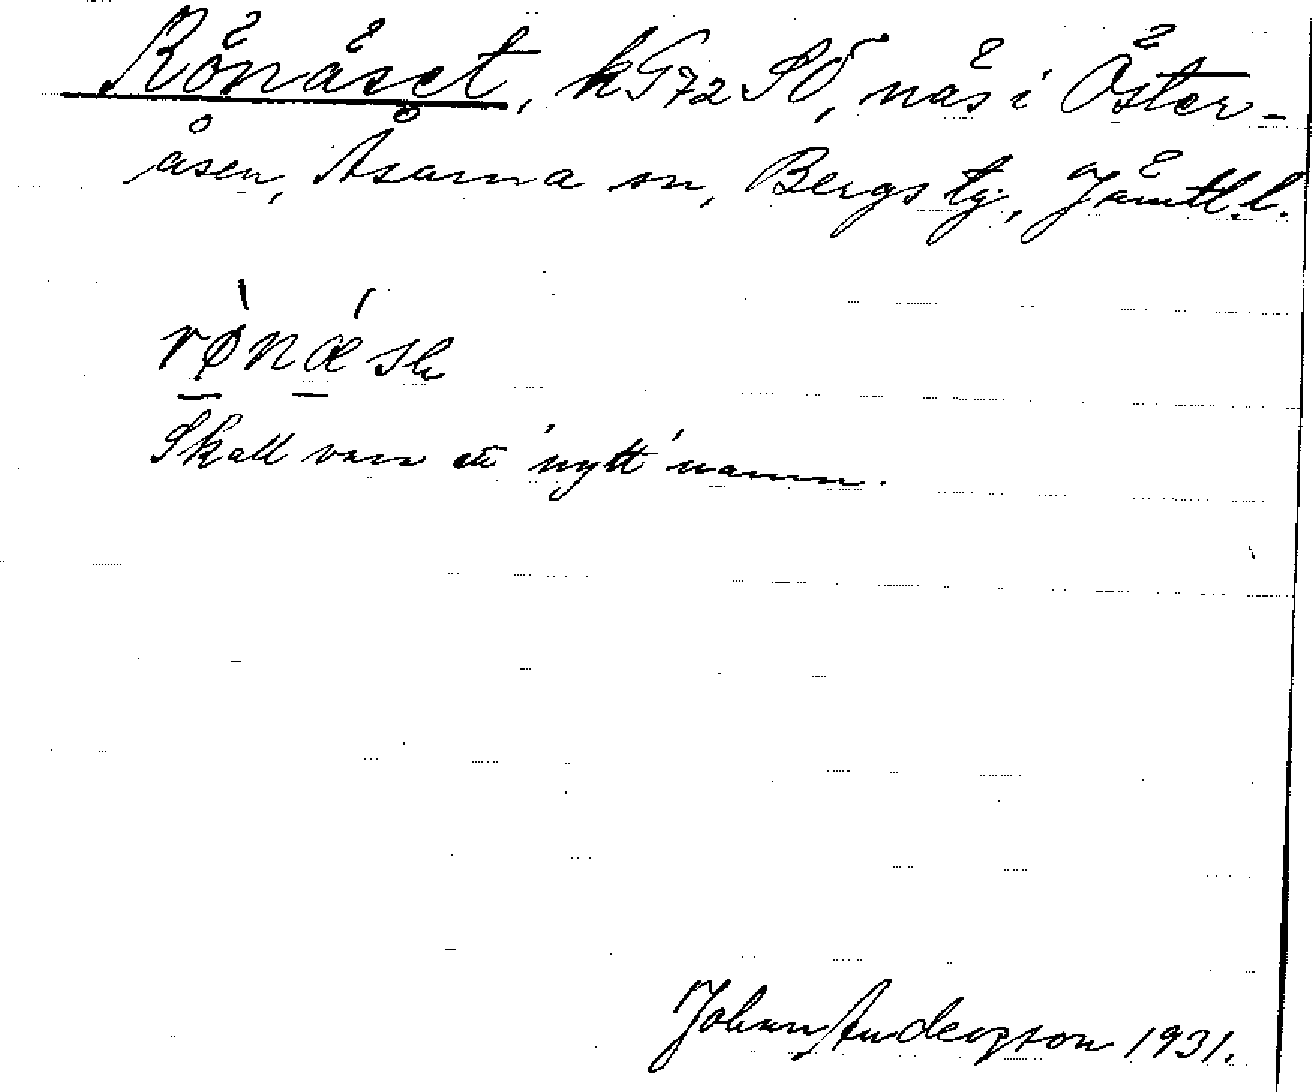 Rönäset, k 572 SO, näs i Öster-
åsen, Åsarna sn, Bergs tg, Jämtl.l.
rønæsh
Skall vara ett 'nytt' namn.
Johan Andersson 1931.